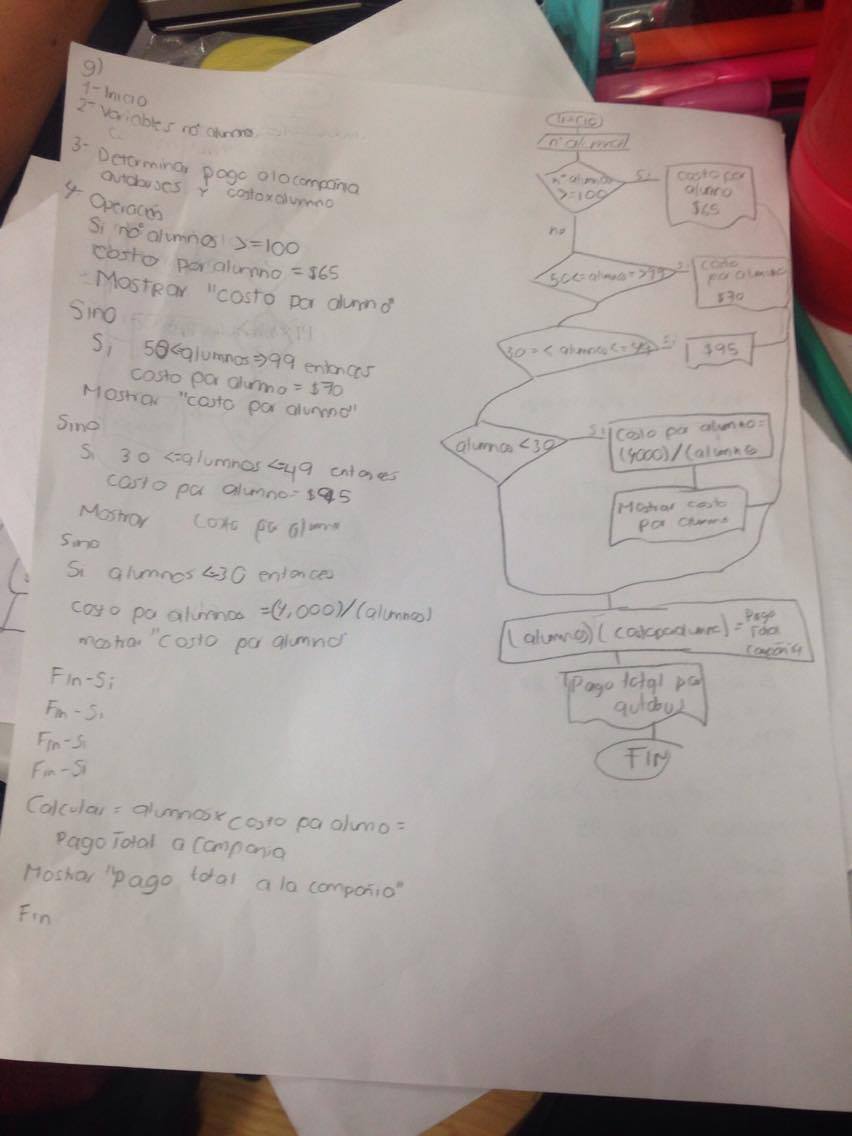 9)
1- Inicio
2- Variables no alumno
3- Determinar pago a la compañia
autobuses y costoxalumno
4- Operación
Si no° alumnos >=100
Costo por alumno = $65
Mostrar "costo por alumno"
Sino
Si 50<=alumnos=>99 entonces
costo por alumno = $70
Mostrar "costo por alumno"
Sino
Si 30 <=alumnos<=49 entonces
costo por alumno= $95
Mostrar costo por alumno
Sino
Si alumnos <=30 entonces
costo por alumnos =(4,000)/(alumnos)
mostrar "costo por alumno
Fin-Si
Fin-Si
Fin-Si
Fin-Si
Calcular = alumnosx costo por alumo =
Pago Total a compañia
Mostrar "pago total a la compañia"
Fin
Inicio
n° alumnos
n° alumnos
>=100
Si
costo por
alumno
$65
no
50<=alumnos=>99
Si
costo
por alumno
$70
30=< alumnos <=49
Si
$95
alumnos <30
Si
costo por alumno=
(4000)/(alumnos
Mostrar costo
por alumno
(alumno) (costoporalumno) = Pago
Total
compañia
Pago total por
autobus
FIN